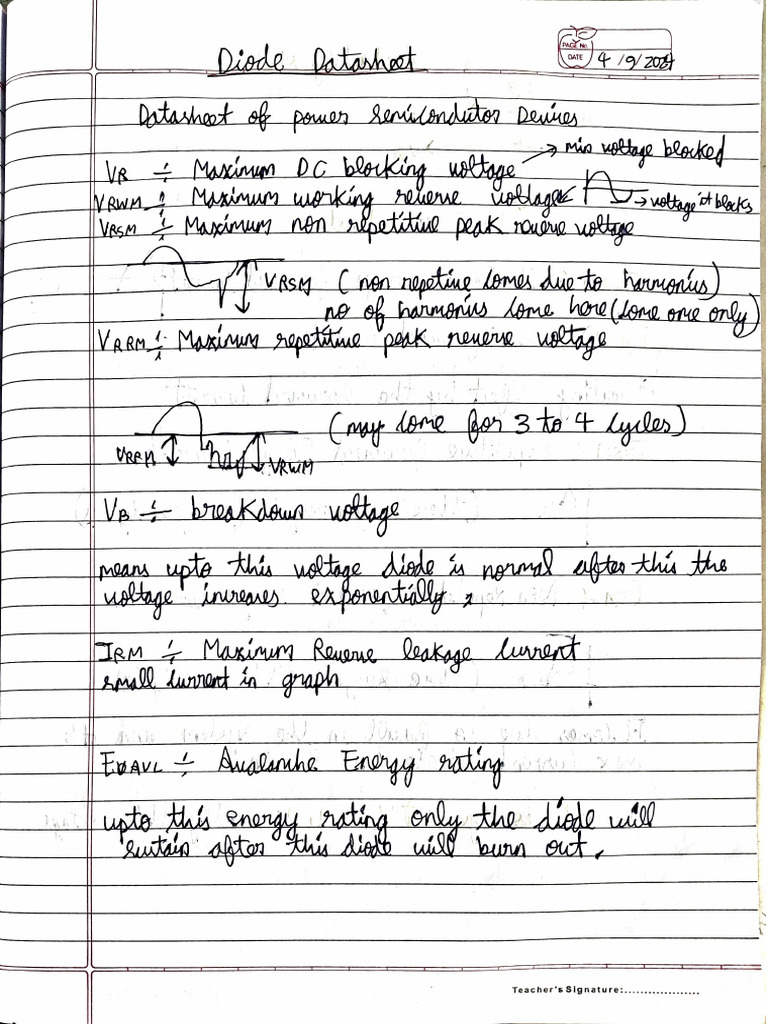 PAGE No.
DATE 4/9/2024
Diode Datasheet
Datasheet of power semiconductor Devices
VR ÷ Maximum DC blocking voltage → min voltage blocked
VRWM ÷ Maximum working reverse voltage → voltage it blocks
VRSM ÷ Maximum non repetitive peak reverse voltage
VRSM (non repetive comes due to harmonics)
no of harmonics come here (come one only)
VRRM ÷ Maximum repetitive peak reverse voltage
(may come for 3 to 4 cycles)
VRRM VRWM
VB ÷ breakdown voltage
means upto this voltage diode is normal after this the
voltage increases exponentially,
IRM ÷ Maximum Reverse leakage current
small current in graph
÷ Avalanche Energy rating
upto this energy rating only the diode will
sustain after this diode will burn out.
Teacher's Signature:....................